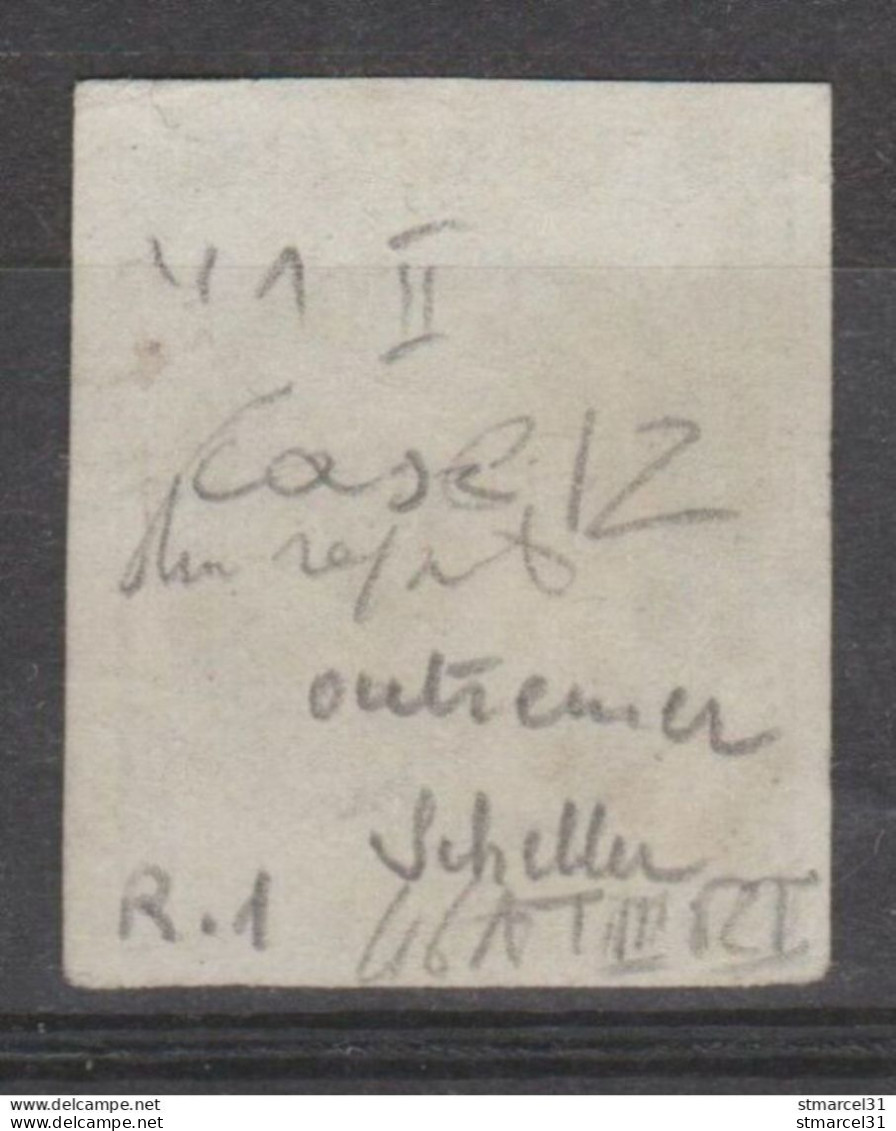 41 II
Case 12
outremer
Scheller
R.1
46A T III R I
www.delcampe.net stmarcel31
www.delcampe.net stmarcel31